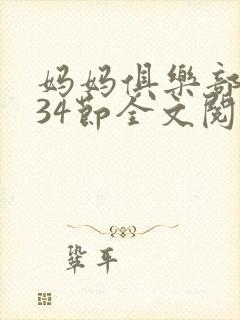 妈妈俱樂部
34節全文閱
鞏平